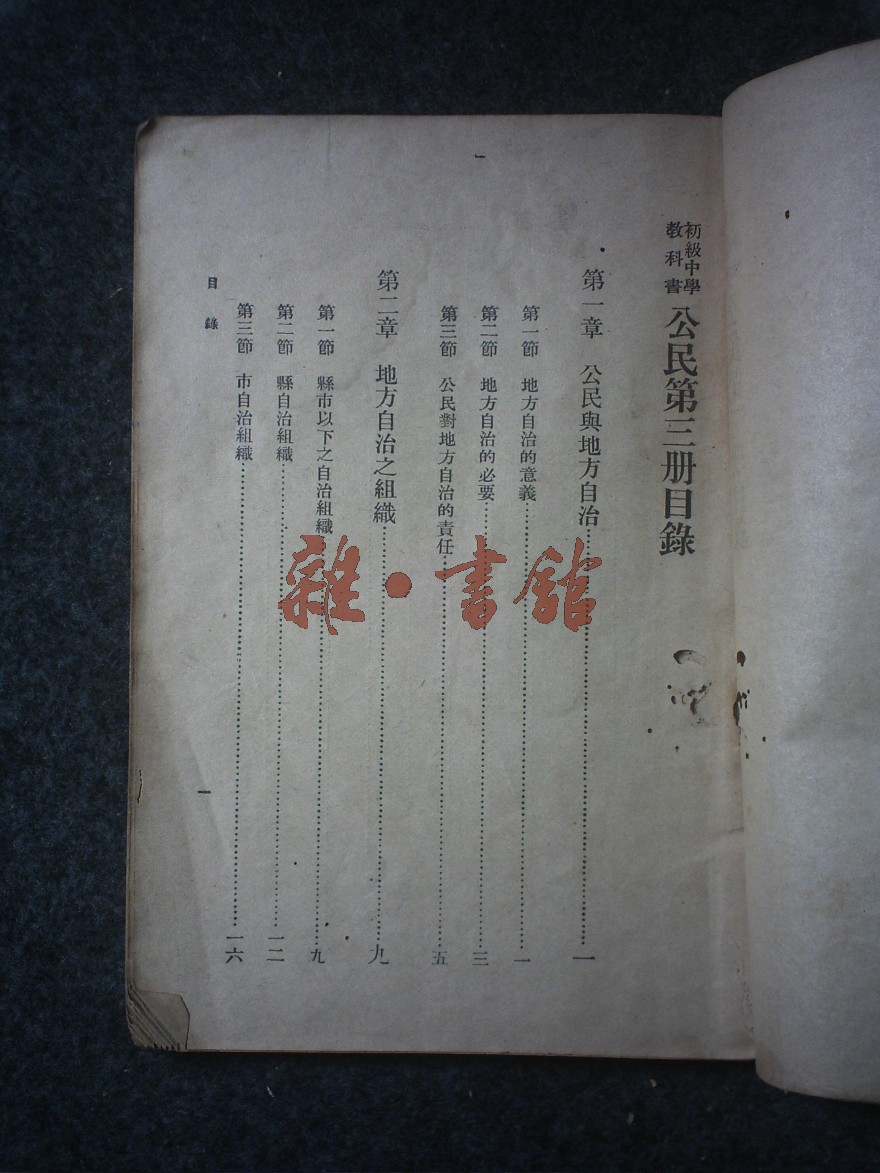 初級中學教科書 公民第三册目錄
第一章 公民與地方自治 一
第一節 地方自治的意義 一
第二節 地方自治的必要 三
第三節 公民對地方自治的責任 五
第二章 地方自治之組織 九
第一節 縣市以下之自治組織 九
第二節 縣自治組織 一二
第三節 市自治組織 一六
目錄 一
雜·書館